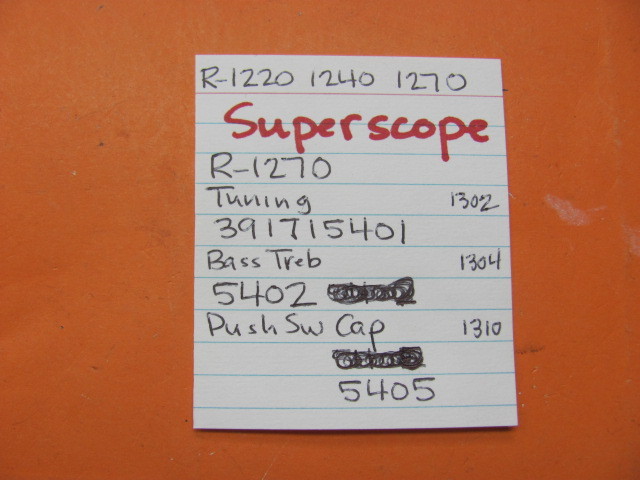 R-1220 1240 1270
Superscope
R-1270
Tuning 1302
391715401
Bass Treb 1304
5402
Push Sw Cap 1310
5405